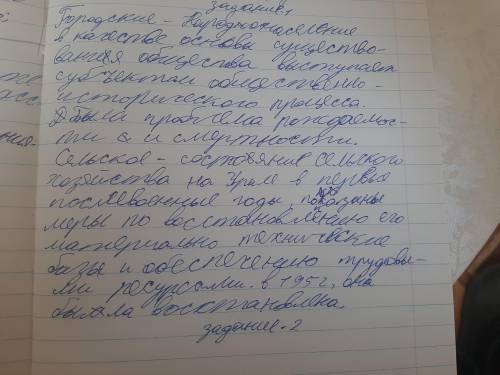 задание.1
Городские - Народнонаселение
в качестве основы существо-
вания общества выступает
субъектом общественно-
исторического процесса.
Была проблема рождаемос-
ти и смертности.
Сельское - состояние сельского
хозяйства на Урале в первые
послевоенные годы, показаны
меры по восстановлению его
материально технические
базы и обеспечению трудовы-
ми ресурсами. в 1952, она
была восстановлена.
задание. 2